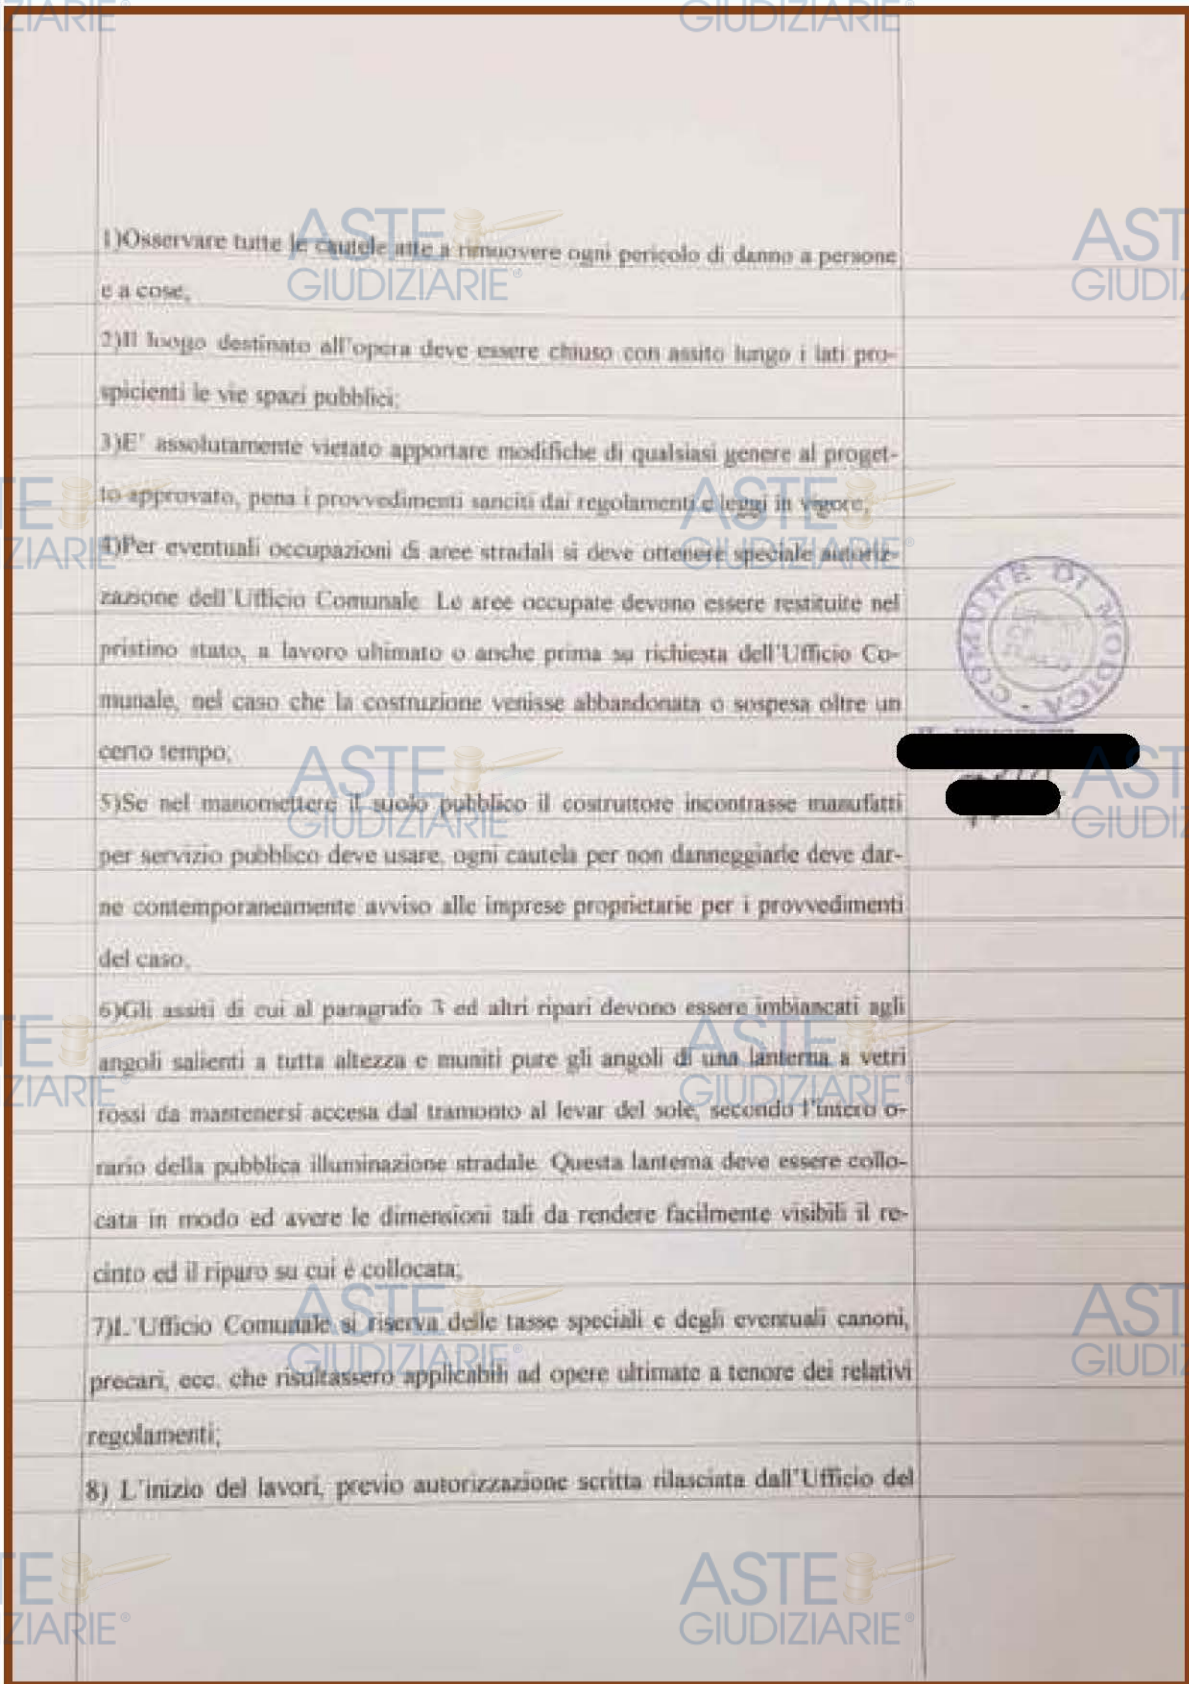 1)Osservare tutte le cautele atte a rimuovere ogni pericolo di danno a persone
e a cose,
2)Il luogo destinato all'opera deve essere chiuso con assito lungo i lati pro-
spicienti le vie spazi pubblici;
3)E' assolutamente vietato apportare modifiche di qualsiasi genere al proget-
to approvato, pena i provvedimenti sanciti dai regolamenti e leggi in vigore,
4)Per eventuali occupazioni di aree stradali si deve ottenere speciale autoriz-
zazione dell'Ufficio Comunale. Le aree occupate devono essere restituite nel
pristino stato, a lavoro ultimato o anche prima su richiesta dell'Ufficio Co-
munale, nel caso che la costruzione venisse abbandonata o sospesa oltre un
certo tempo;
5)Se nel manomettere il suolo pubblico il costruttore incontrasse manufatti
per servizio pubblico deve usare, ogni cautela per non danneggiarle deve dar-
ne contemporaneamente avviso alle imprese proprietarie per i provvedimenti
del caso,
6)Gli assiti di cui al paragrafo 3 ed altri ripari devono essere imbiancati agli
angoli salienti a tutta altezza e muniti pure gli angoli di una lanterna a vetri
rossi da mantenersi accesa dal tramonto al levar del sole, secondo l'intero o-
rario della pubblica illuminazione stradale. Questa lanterna deve essere collo-
cata in modo ed avere le dimensioni tali da rendere facilmente visibili il re-
cinto ed il riparo su cui è collocata;
7)L'Ufficio Comunale si riserva delle tasse speciali e degli eventuali canoni,
precari, ecc. che risultassero applicabili ad opere ultimate a tenore dei relativi
regolamenti;
8) L'inizio del lavori, previo autorizzazione scritta rilasciata dall'Ufficio del
COMUNE DI MODICA
ASTE
GIUDIZIARIE®